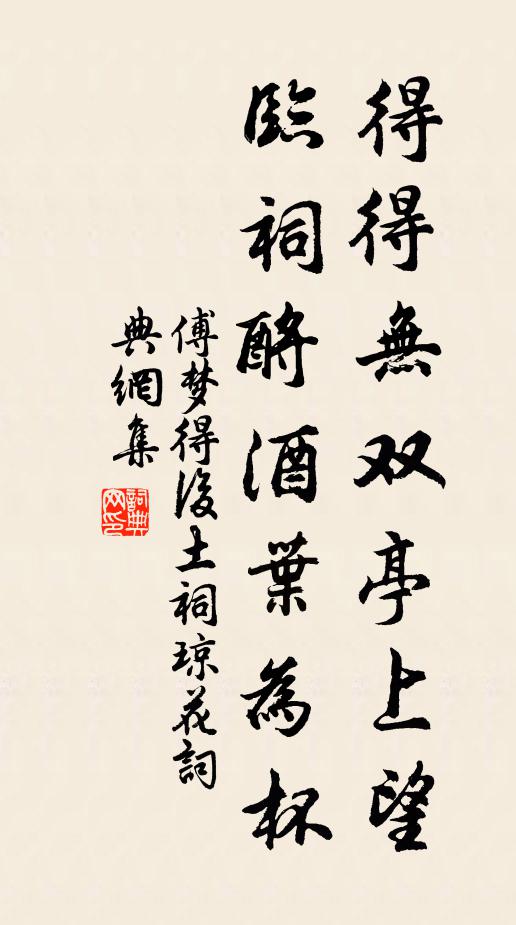 得得無双亭上望
臨祠酹酒葉為杯
傅梦得後土祠琼花詞
典網集
詞典網印